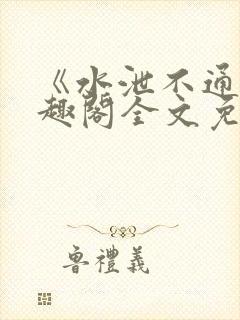 《水泄不通
趣阁全文免
鲁禮義